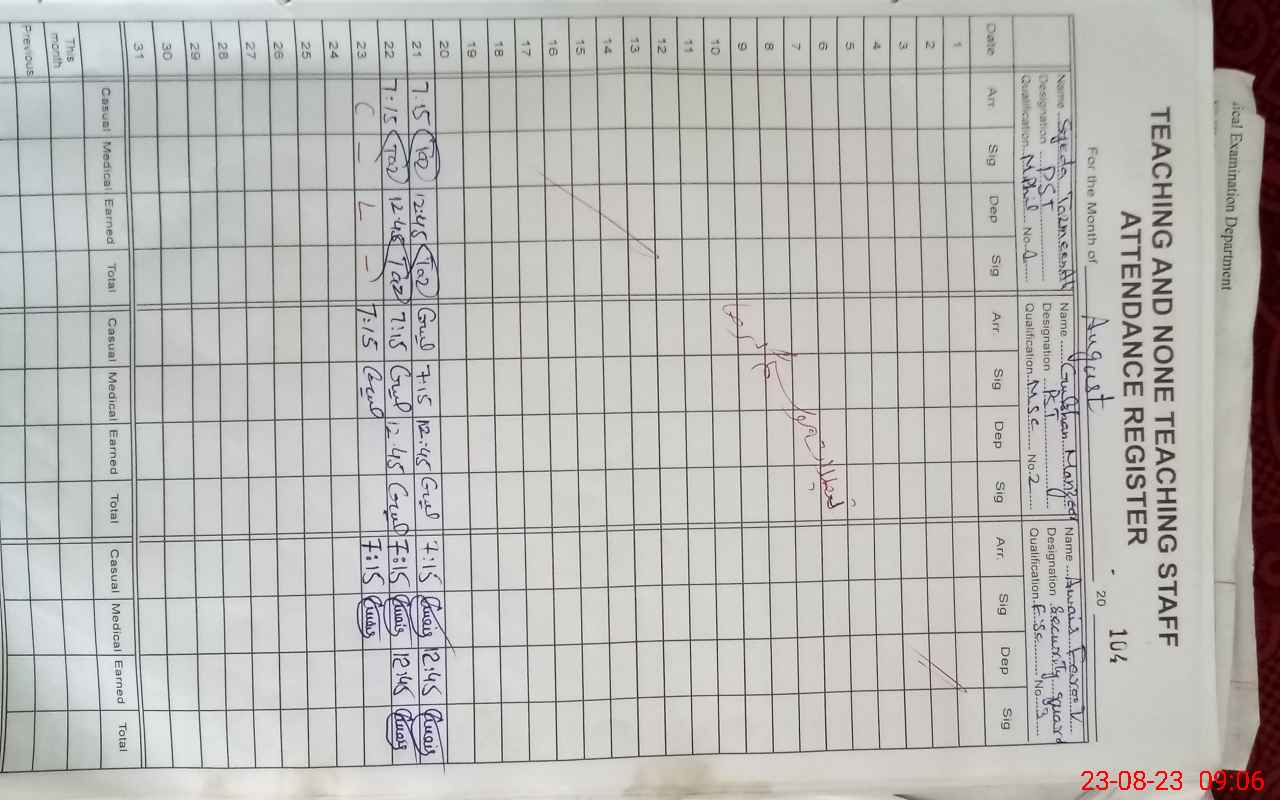 ical Examination Department
TEACHING AND NONE TEACHING STAFF
ATTENDANCE REGISTER
104
For the Month of August 20
Name Syeda Name Gulshan Name Awais Farooq
Designation PST Designation PST Designation Security guard
Qualification M.Phil No.1 Qualification M.Sc No.2 Qualification F.Sc No.3
Date Arr. Sig Dep Sig Arr. Sig Dep Sig Arr. Sig Dep Sig
1
2
3
4
5
6
7
8
9
10
11
12
13
14
15
16
17
18
19
20
21 7.15 Taz 12:45 Taz Gul 7:15 12:45 Gul 7:15 Awais 12:45 Awais
22 7:15 Taz 12:45 Taz 7:15 Gul 12.45 Gul 7:15 Awais 12:45 Awais
23 ( — L — ) 7:15 Gul 7:15 Awais
24
25
26
27
28
29
30
31
Casual Medical Earned Total Casual Medical Earned Total Casual Medical Earned Total
This month
Previous
23-08-23 09:06